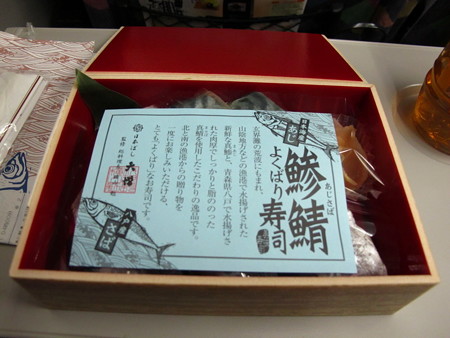 あじさば
鯵鯖
よくばり寿司
玄界灘の荒波にもまれ、
山陰地方などの漁港で水揚げされた
新鮮な真鯵と、青森県八戸で水揚げさ
れた肉厚でしっかりと脂ののった
真鯖を使用したこだわりの逸品です。
北と南の漁港からの贈り物を
一度にお楽しみいただける、
とてもよくばりなお寿司です。